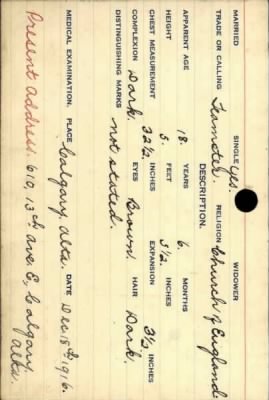 MARRIED SINGLE yes. WIDOWER
TRADE OR CALLING Teamster. RELIGION Church of England
DESCRIPTION.
APPARENT AGE 18. YEARS 6. MONTHS
HEIGHT 5. FEET 5 1/2. INCHES
CHEST MEASUREMENT 32 1/2. INCHES EXPANSION 3 1/2 INCHES
COMPLEXION Dark. EYES Brown. HAIR Dark.
DISTINGUISHING MARKS not stated.
MEDICAL EXAMINATION: PLACE Calgary Alta. DATE Dec. 18th 1916.
Present address. 610, 13th ave. E, Calgary
Alta.